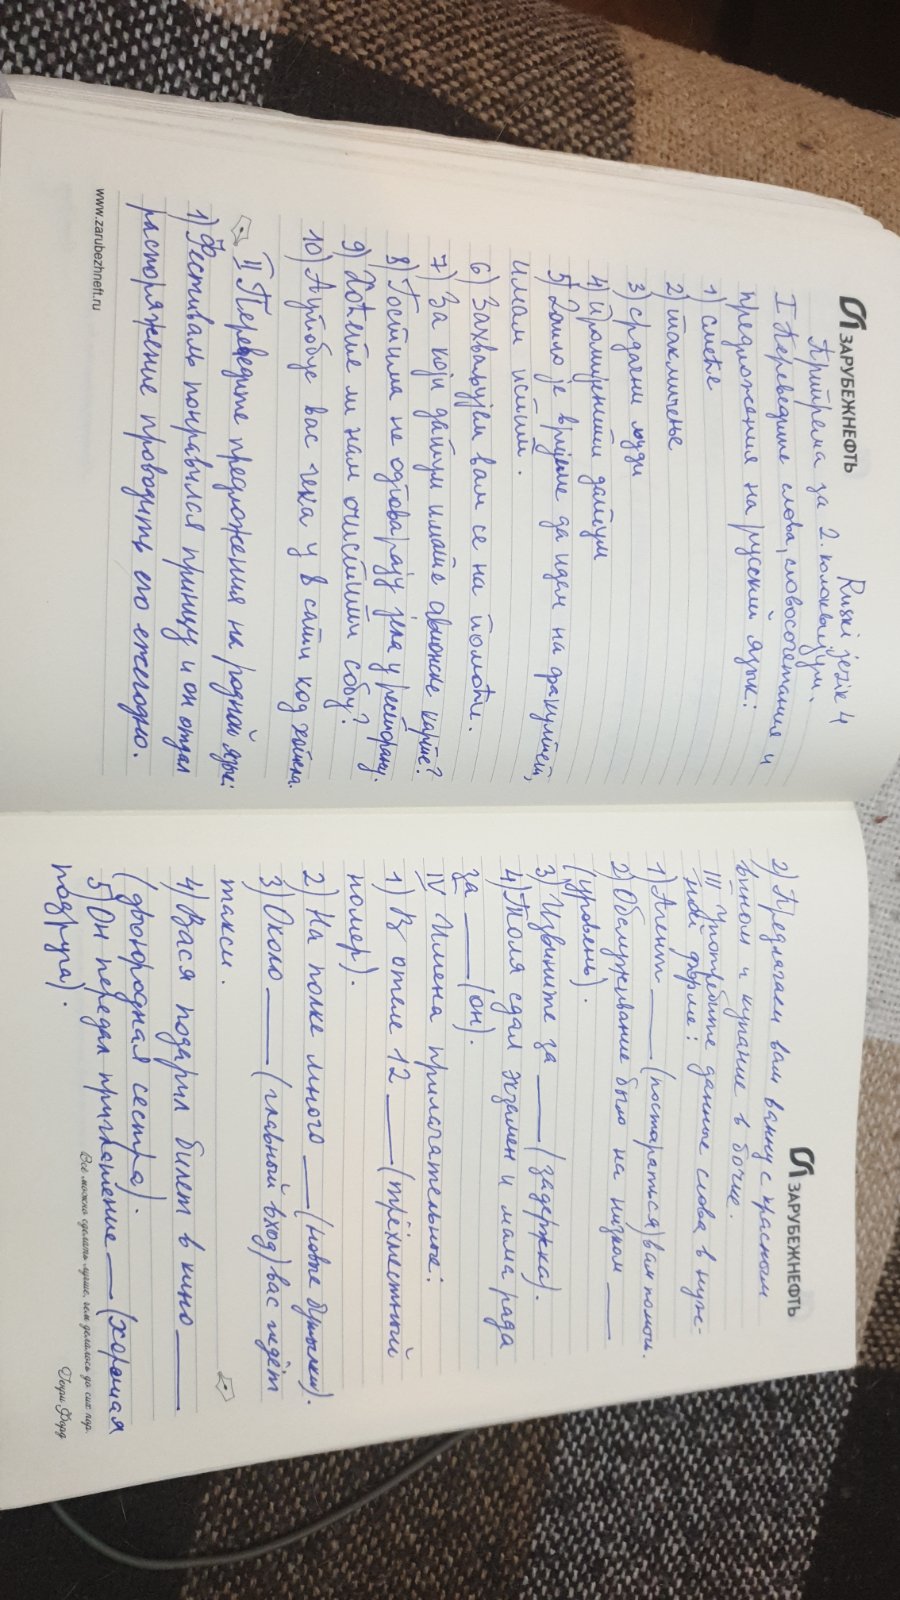 ЗАРУБЕЖНЕФТЬ
Ruski jezik 4
Припрема за 2. колоквијум.
I Переведите слова, словосочетания и
предложения на русский язык:
1) смеће
2) такмичење
3) срдачни људи
4) промијенити датум
5) Дошло је вријеме да идем на факултет,
имам испит.
6) Захваљујем вам се на помоћи.
7) За који датум имате авионске карте?
8) Гостима не одговарају јела у ресторану.
9) Хоћете ли нам очистити собу?
10) Аутобус вас чека у 8 сати код хотела.
II Переведите предложения на родной язык:
1) Фестиваль понравился принцу и он отдал
распоряжение проводить его ежегодно.
www.zarubezhneft.ru
ЗАРУБЕЖНЕФТЬ
2) Предлагаем вам ванну с красным
вином и купание в бочке.
III Употребите данные слова в нуж-
ной форме:
1) Агент ___ (постараться) вам помочь.
2) Обслуживание было на низком ___
(уровень).
3) Извините за ___ (задержка).
4) Толя сдал экзамен и мама рада
за ___ (он).
IV Имена прилагательные:
1) В отеле 12 ___ (трёхместный
номер).
2) На полке много ___ (новые бутылки).
3) Около ___ (главный вход) вас ждёт
такси.
4) Вася подарил билет в кино ___
(двоюродная сестра).
5) Он передал приглашение ___ (хорошая
подруга).
Всё можно сделать лучше, чем делалось до сих пор.
Генри Форд